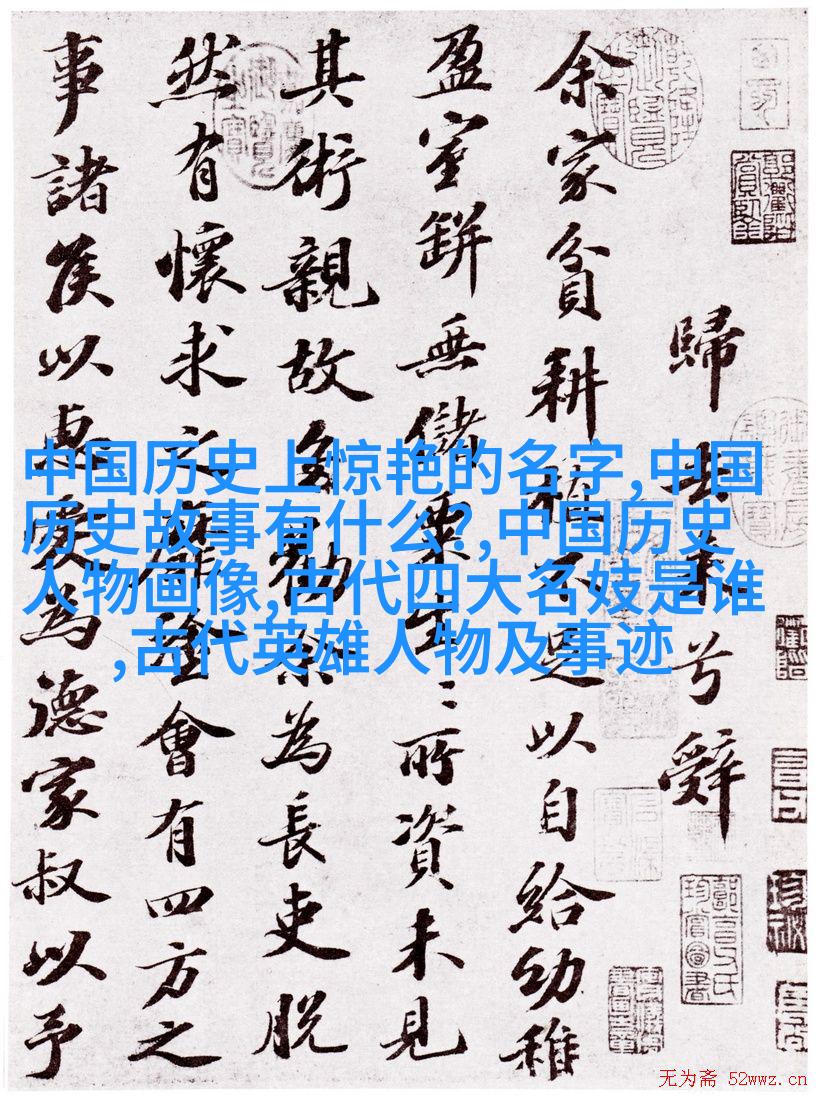 歸去来兮辭
余家貧耕植不足以自給幼稚
盈室缾無儲粟生〻所資未見
其術親故多勸余為長吏脱
然有懷求之靡途會有四方之
事諸侯以惠愛為德家叔以予
中国历史上惊艳的名字,中国
历史故事有什么?,中国历史
人物画像,古代四大名妓是谁
,古代英雄人物及事迹
无为斋 52wwz.cn